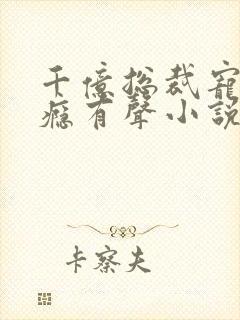 千億总裁寵
癮有聲小說
卡察夫